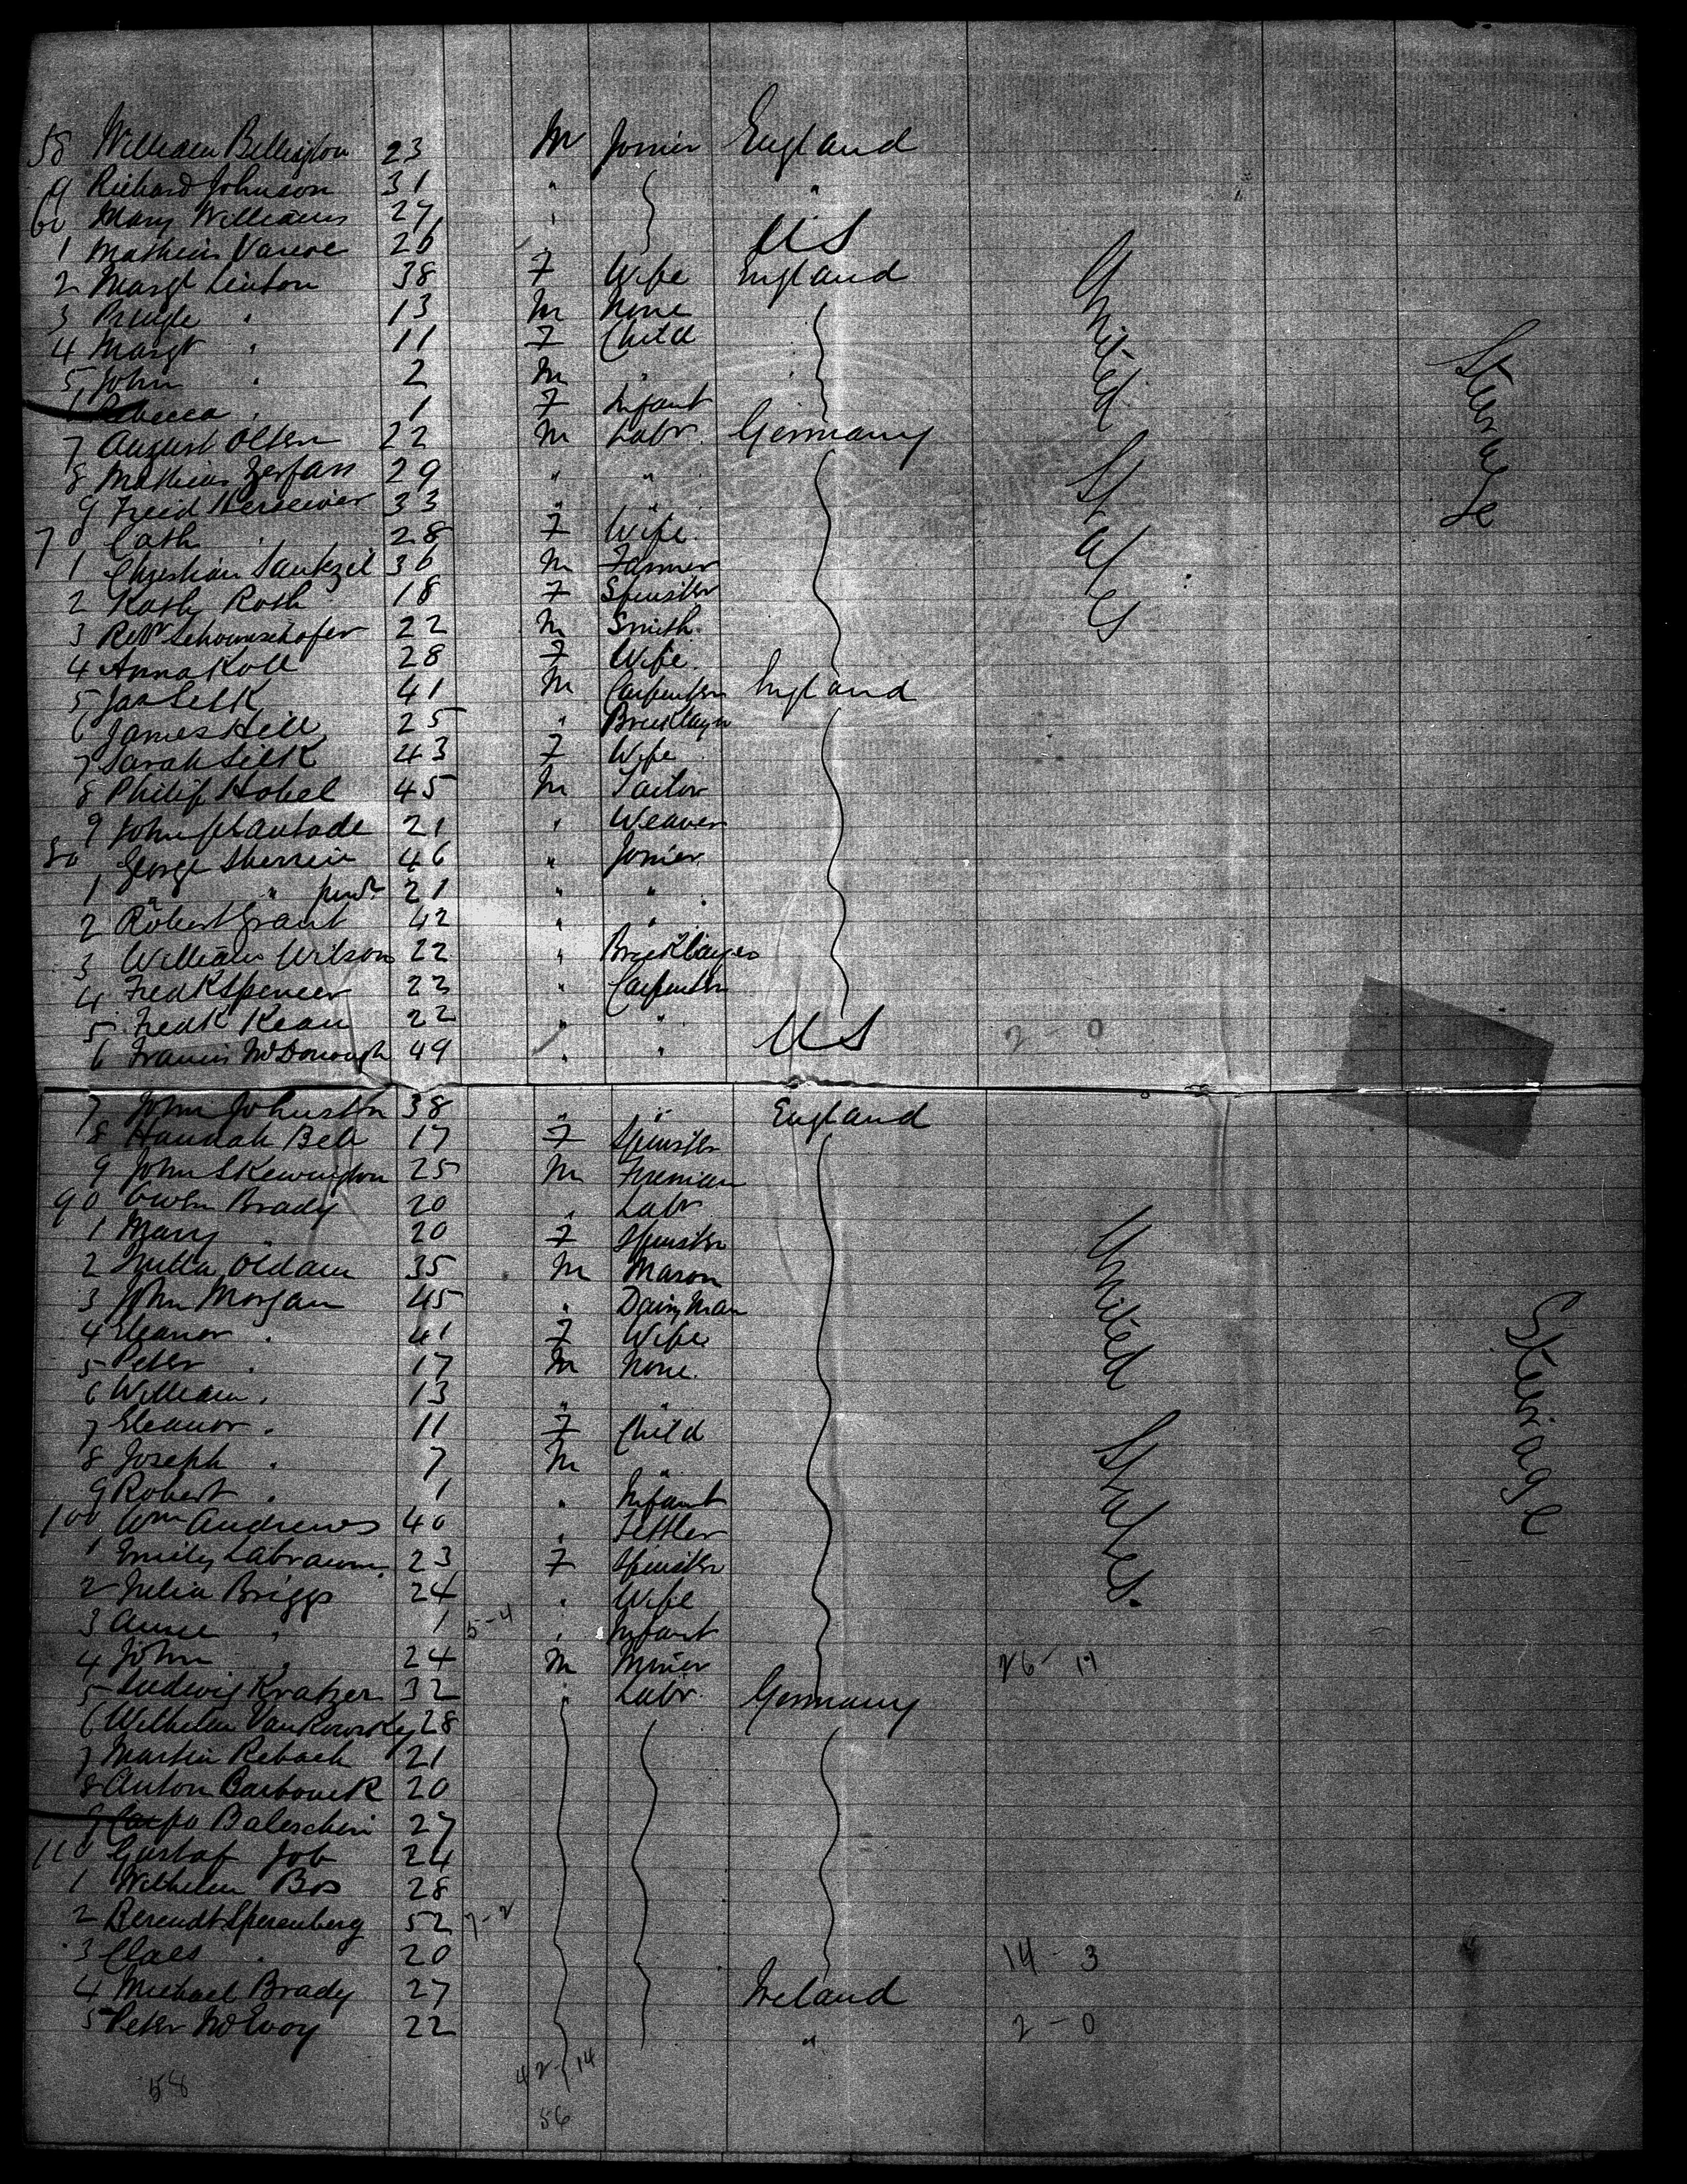 58 William Bellington 23 M Joiner England
9 Richard Johnson 31 " "
60 Mary Williams 27 "
1 Mathew 26 " US
2 Margt Linton 38 F Wife England
3 " 13 M None
4 Margt " 11 F Child
5 John " 2 M "
6 Rebecca " 1 F Infant
7 August Olsen 22 M Labr. Germany
8 Mathias Zerfass 29 " "
9 Fried 33 " "
70 Cath " 28 F Wife
1 Christian 36 M Farmer
2 Kath Roth 18 F Spinster
3 22 M Smith
4 Anna Koll 28 F Wife
5 Jas Selk 41 M Carpenter England
6 James Hill 25 " Bricklayer
7 Sarah Silk 43 F Wife
8 Philip Hobel 45 M Tailor
9 John 21 " Weaver
80 George Sherrin 46 " Joiner
1 " " junr 21 " "
2 Robert Grant 42 " "
3 William Wilson 22 " Bricklayer
4 Fredk Spencer 23 " Carpenter
5 Fredk Kean 22 " " US 2 - 0
6 Francis McDonough 49 " "
7 John Johnston 38 " " England
8 Hannah Bell 17 F Spinster
9 John Skewington 25 M Fireman
90 Owen Brady 20 " Labr
1 Mary " 20 F Spinster
2 Oldam 35 M Mason
3 John Morgan 45 " Dairy Man
4 Eleanor " 41 F Wife
5 Peter " 17 M None
6 William " 13 " "
7 Eleanor " 11 F Child
8 Joseph " 7 M "
9 Robert " 1 " Infant
100 Wm Andrews 40 " Settler
1 Emily Labraum 23 F Spinster
2 Julia Briggs 24 " Wife
3 Annie " 1 5-4 " Infant
4 John " 24 M Miner 26 - 11
5 Ludwig Kratzer 32 " Labr. Germany
6 Wilhelm Vankowsky 28
7 Martin Reback 21
8 Anton Barbouck 20
9 Balescheri 27
110 Gustaf Job 24
1 Wilhelm Bos 28
2 Berendt Sperenberg 52 7-2
3 Claes " 20 14 - 3
4 Michael Brady 27 Ireland
5 Peter McEvoy 22 " 2 - 0
42-14
58
56
United States
Steerage
United States.
Steerage